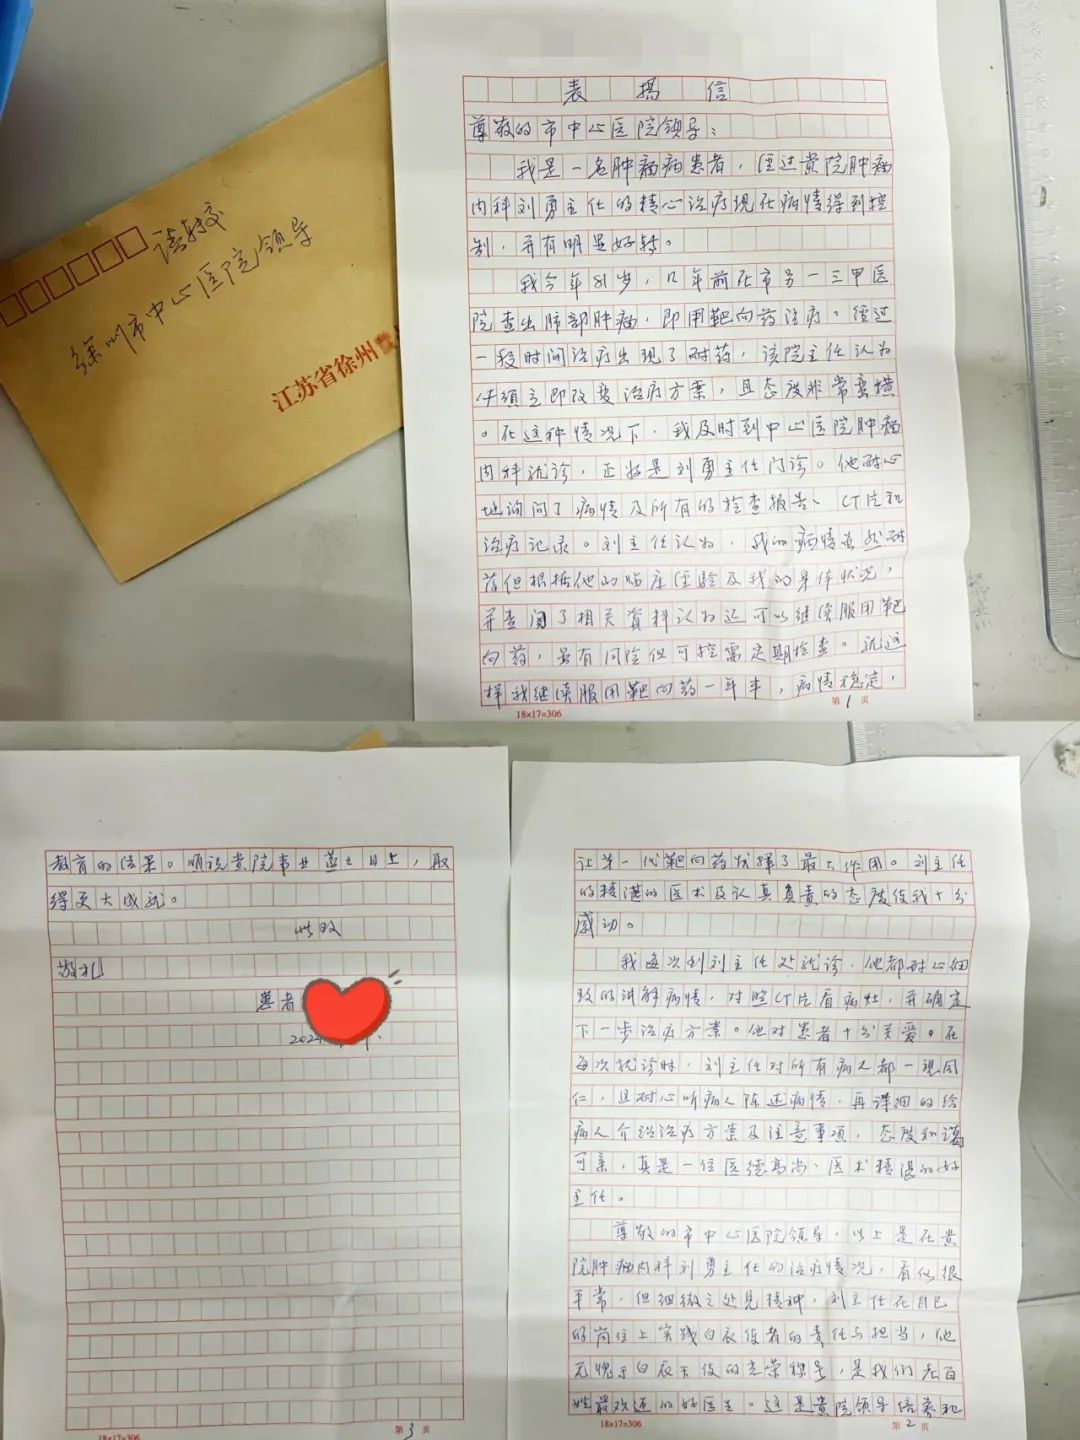 请转交
徐州市中心医院领导
江苏省徐州
表扬信
尊敬的市中心医院领导：
我是一名肿瘤病患者，经过贵院肿瘤
内科刘勇主任的精心治疗现在病情得到控
制，并有明显好转。
我今年81岁，几年前在市另一三甲医
院查出肺部肿瘤，即用靶向药治疗。经过
一段时间治疗出现了耐药，该院主任认为
必须立即改变治疗方案，且态度非常蛮横
。在这种情况下，我及时到中心医院肿瘤
内科就诊，正好是刘勇主任门诊。他耐心
地询问了病情及所有的检查报告、CT片和
治疗记录。刘主任认为，我的病情虽然耐
药但根据他的临床经验及我的身体状况，
并查阅了相关资料认为还可以继续服用靶
向药，虽有风险但可控需定期检查。就这
样我继续服用靶向药一年半，病情稳定，
18×17=306
第1页
让第一代靶向药发挥了最大作用。刘主任
的精湛的医术及认真负责的态度使我十分
感动。
我每次到刘主任处就诊，他都耐心细
致的讲解病情，对照CT片看病灶，并确定
下一步治疗方案。他对患者十分关爱。在
每次就诊时，刘主任对所有病人都一视同
仁，且耐心听病人陈述病情，再详细的给
病人介绍治疗方案及注意事项，态度和蔼
可亲，真是一位医德高尚、医术精湛的好
主任。
尊敬的市中心医院领导，以上是在贵
院肿瘤内科刘勇主任的治疗情况，看似很
平常，但细微之处见精神，刘主任在自己
的岗位上实践白衣使者的责任与担当，他
无愧于白衣天使的光荣称号，是我们老百
姓最欢迎的好医生。这是贵院领导培养和
18×17=306
第2页
教育的结果。顺祝贵院事业蒸蒸日上，取
得更大成就。
此致
敬礼
患者
2024
18×17=306
第3页